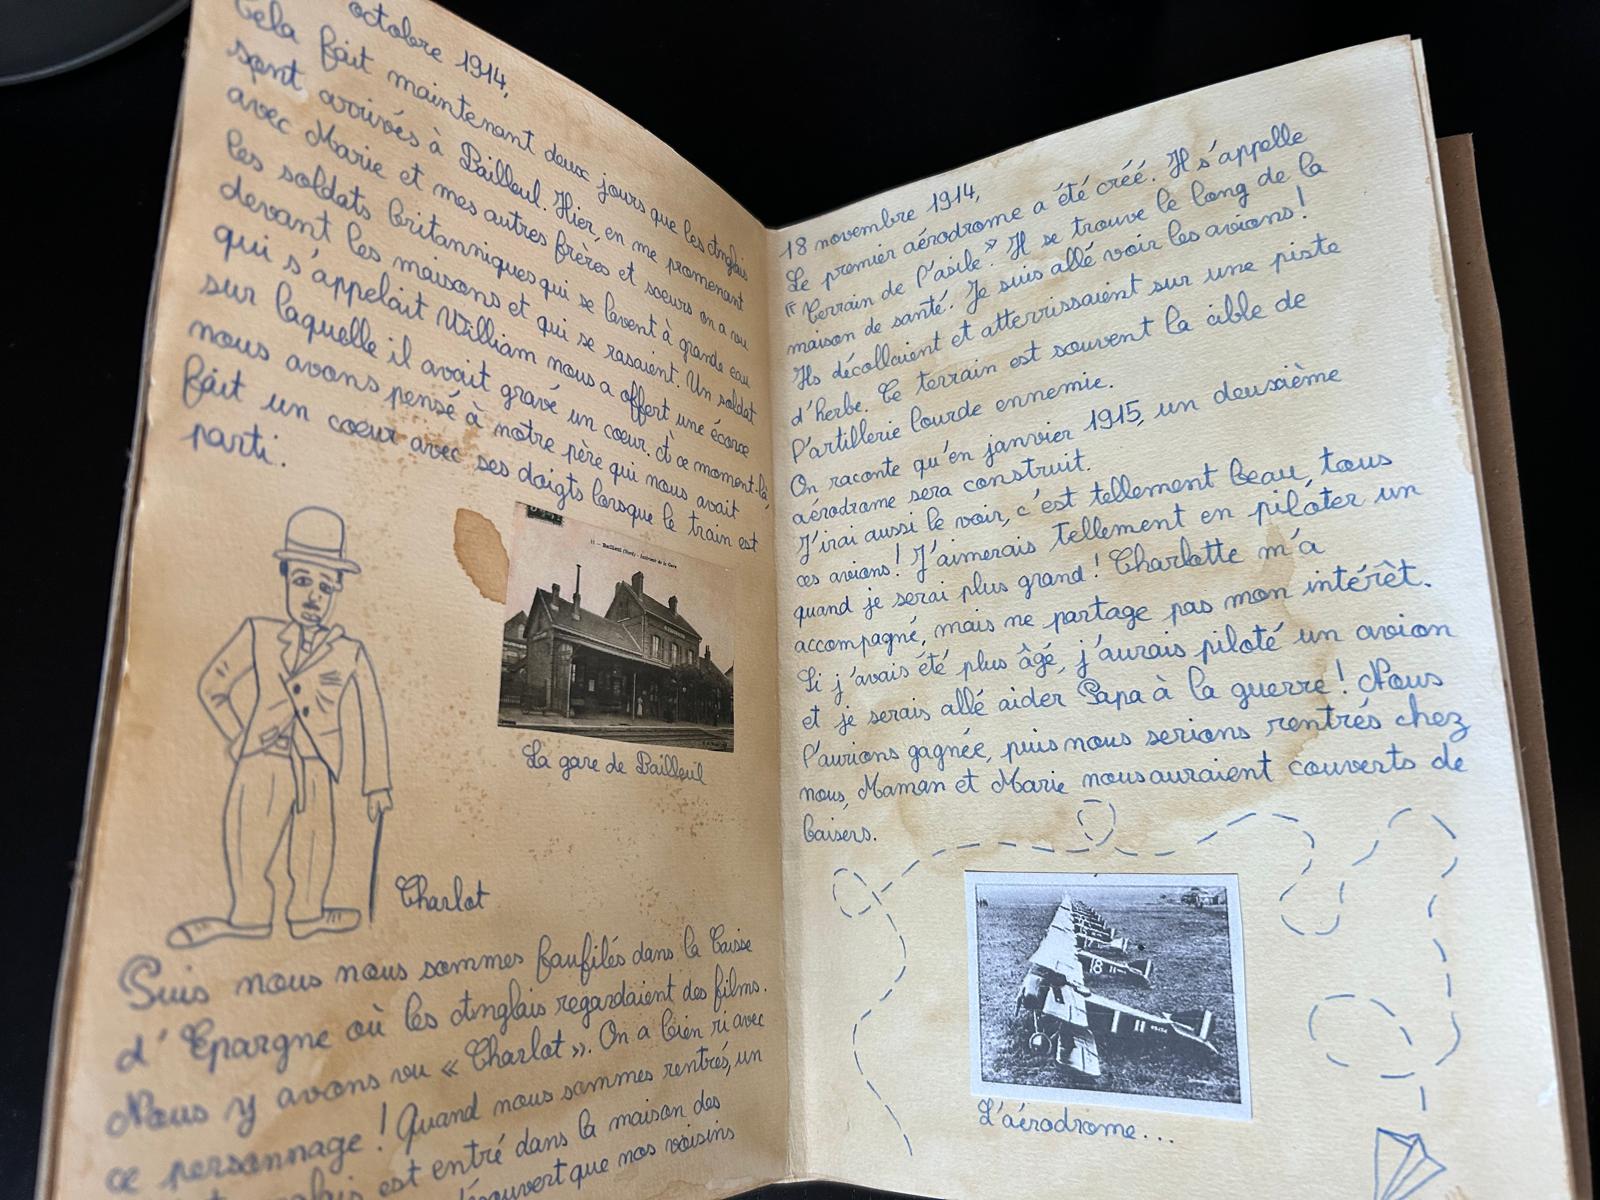 octobre 1914,
Cela fait maintenant deux jours que les Anglais
sont arrivés à Bailleul. Hier, en me promenant
avec Marie et mes autres frères et soeurs on a vu
les soldats britanniques qui se lavent à grande eau
devant les maisons et qui se rasaient. Un soldat
qui s'appelait William nous a offert une écorce
sur laquelle il avait gravé un coeur. À ce moment-là,
nous avons pensé à notre père qui nous avait
fait un coeur avec ses doigts lorsque le train est
parti.
11 - Bailleul (Nord) - Intérieur de la Gare
La gare de Bailleul
Charlot
Puis nous nous sommes faufilés dans la Caisse
d'Epargne où les Anglais regardaient des films.
Nous y avons vu « Charlot ». On a bien ri avec
ce personnage ! Quand nous sommes rentrés, un
est entré dans la maison des
que nos voisins
18 novembre 1914,
Le premier aérodrome a été créé. Il s'appelle
« Terrain de l'asile ». Il se trouve le long de la
maison de santé. Je suis allé voir les avions !
Ils décollaient et atterrissaient sur une piste
d'herbe. Ce terrain est souvent la cible de
l'artillerie lourde ennemie.
On raconte qu'en janvier 1915, un deuxième
aérodrome sera construit.
J'irai aussi le voir, c'est tellement beau, tous
ces avions ! J'aimerais tellement en piloter un
quand je serai plus grand ! Charlotte m'a
accompagné, mais ne partage pas mon intérêt.
Si j'avais été plus âgé, j'aurais piloté un avion
et je serais allé aider Papa à la guerre ! Nous
l'aurions gagnée, puis nous serions rentrés chez
nous, Maman et Marie nous auraient couverts de
baisers.
18
11
L'aérodrome...